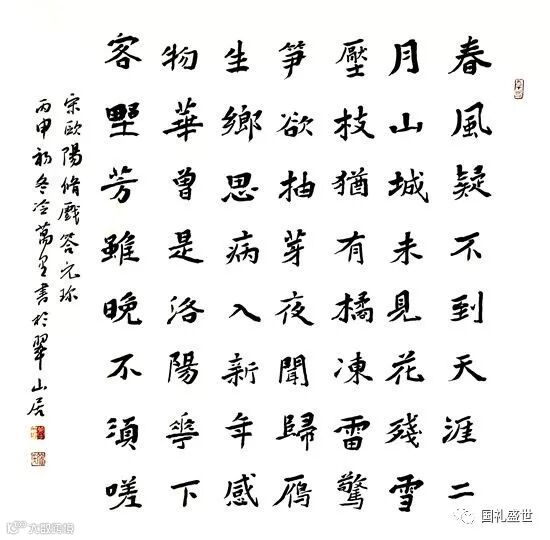 春風疑不到天涯二
月山城未見花殘雪
壓枝猶有橘凍雷驚
笋欲抽芽夜聞歸鴈
生鄉思病入新年感
物華曾是洛陽花下
客野芳雖晚不須嗟
宋歐陽脩戲答元珍
丙申初冬冷萬書於翠山居
大数跨境
国礼盛世